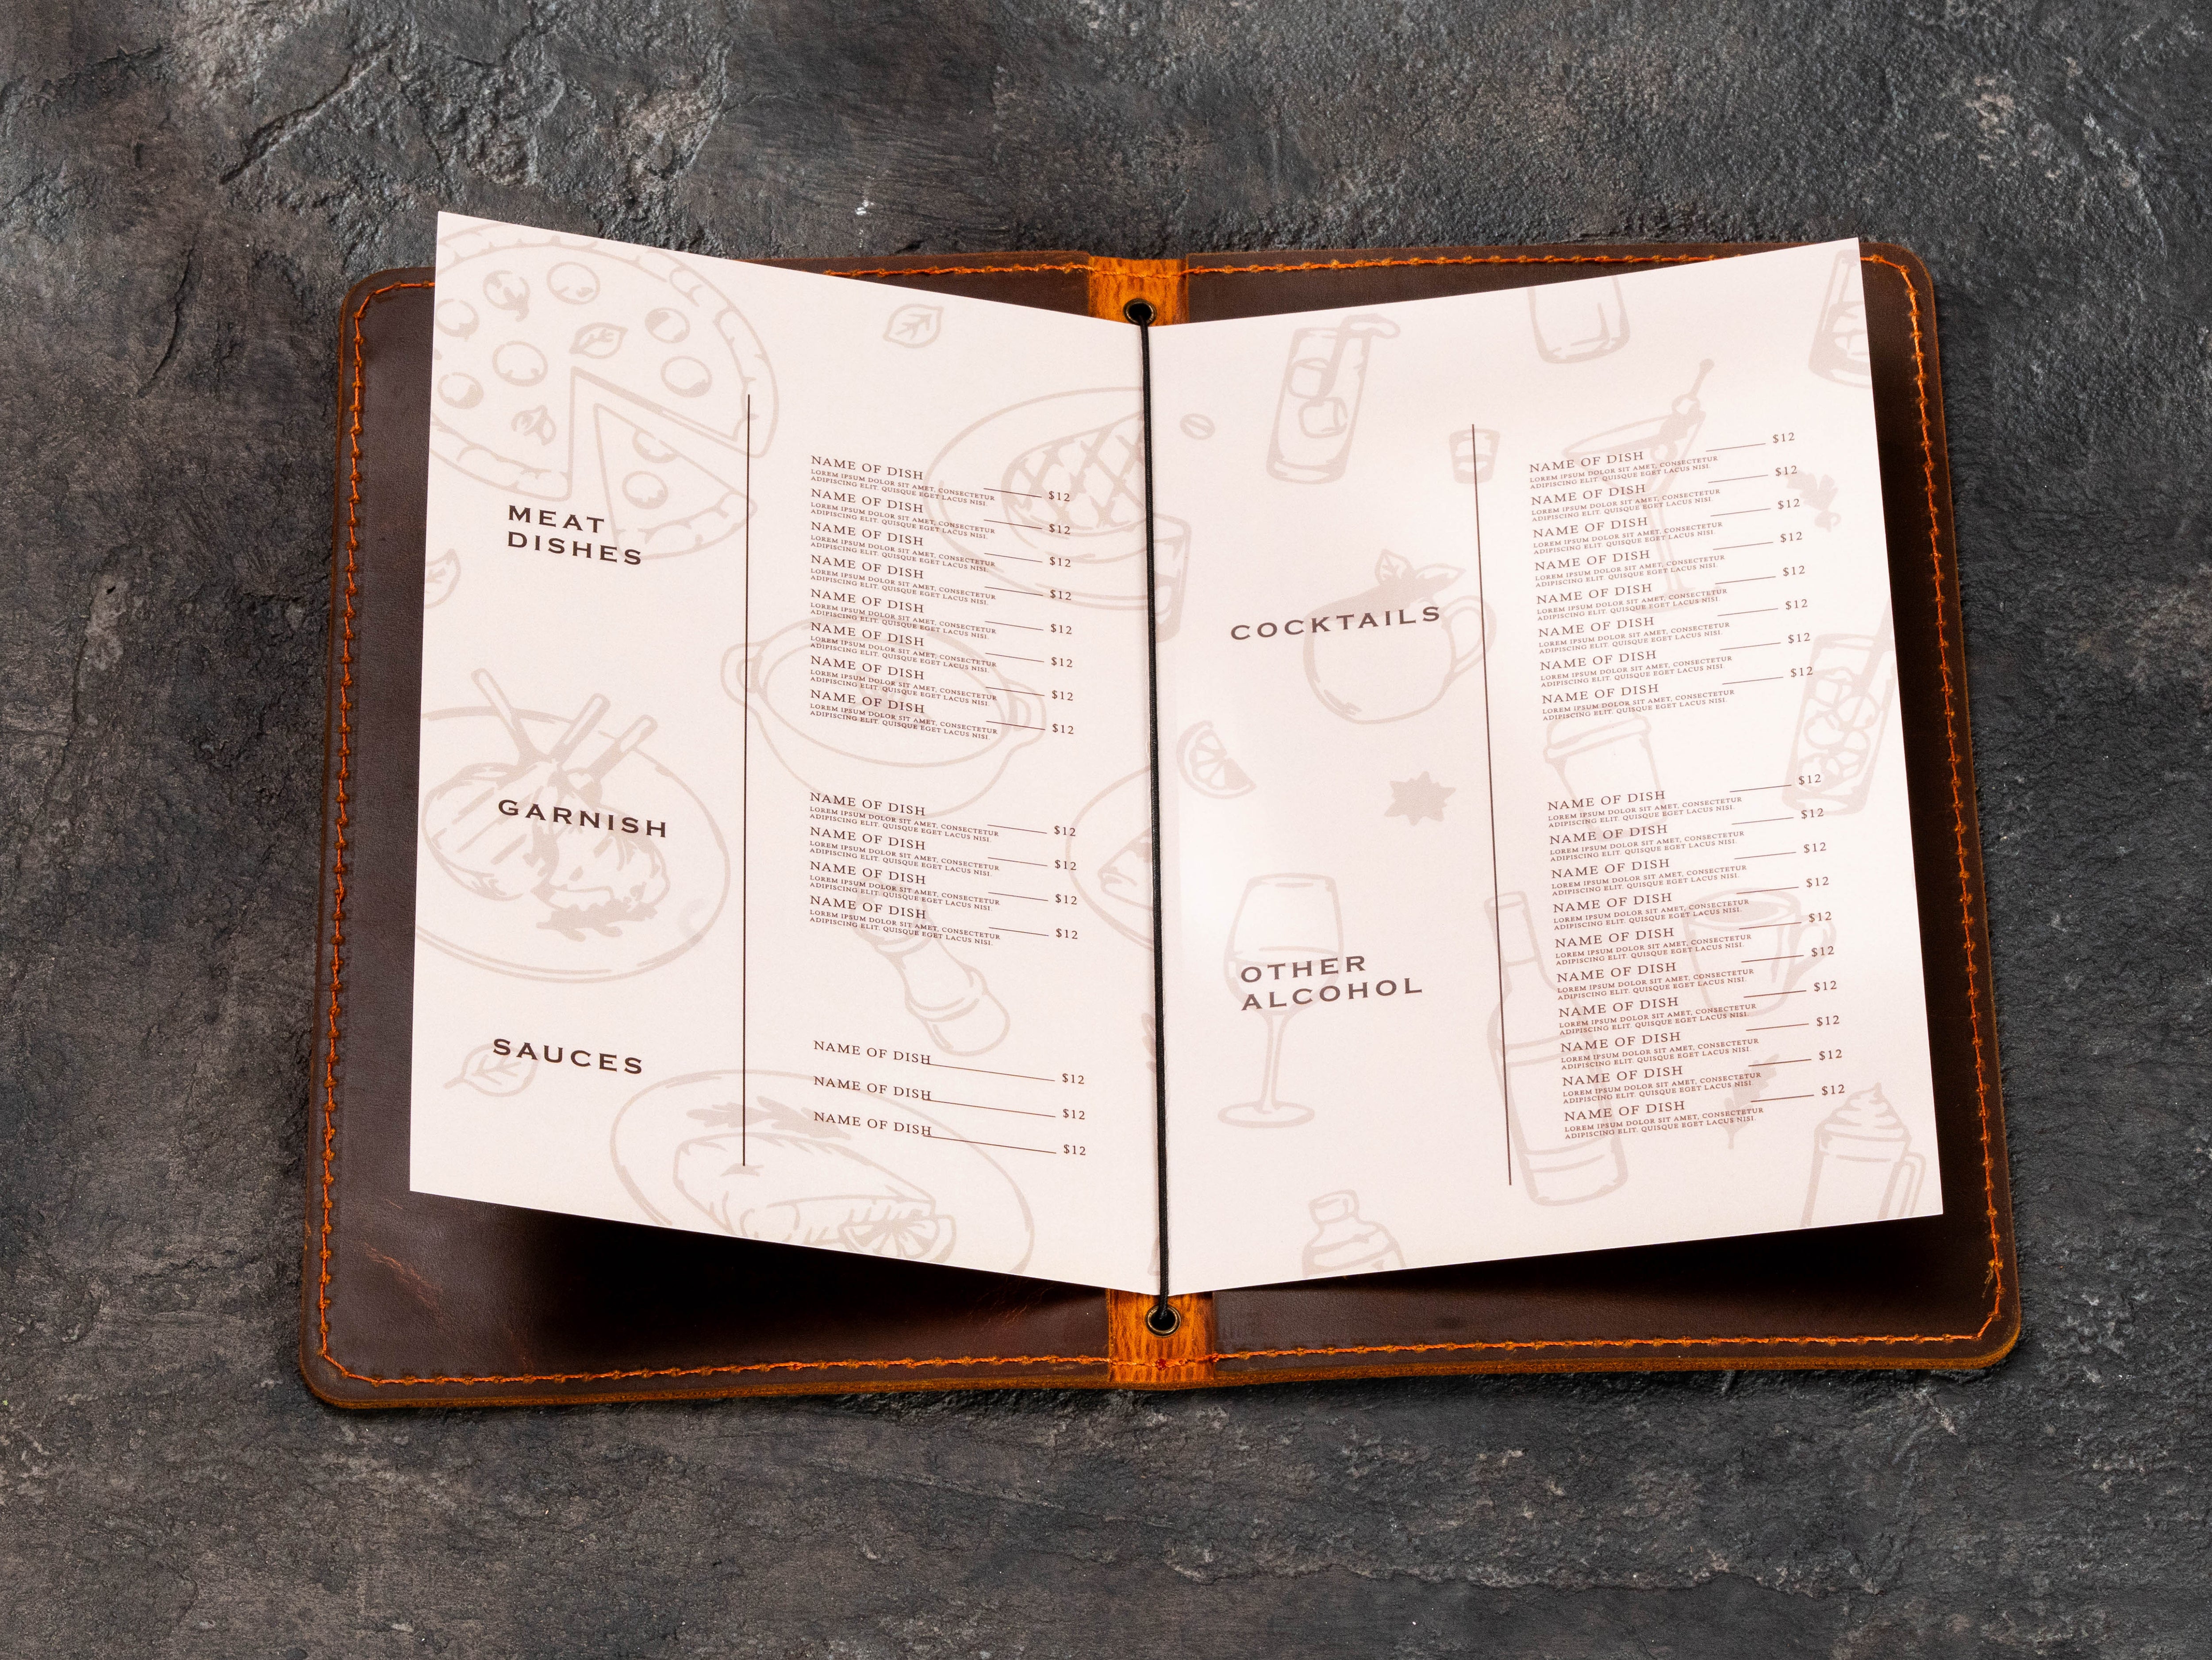 MEAT
DISHES
NAME OF DISH
LOREM IPSUM DOLOR SIT AMET, CONSECTETUR
ADIPISCING ELIT. QUISQUE EGET LACUS NISI.
$12
NAME OF DISH
LOREM IPSUM DOLOR SIT AMET, CONSECTETUR
ADIPISCING ELIT. QUISQUE EGET LACUS NISI.
$12
NAME OF DISH
LOREM IPSUM DOLOR SIT AMET, CONSECTETUR
ADIPISCING ELIT. QUISQUE EGET LACUS NISI.
$12
NAME OF DISH
LOREM IPSUM DOLOR SIT AMET, CONSECTETUR
ADIPISCING ELIT. QUISQUE EGET LACUS NISI.
$12
NAME OF DISH
LOREM IPSUM DOLOR SIT AMET, CONSECTETUR
ADIPISCING ELIT. QUISQUE EGET LACUS NISI.
$12
NAME OF DISH
LOREM IPSUM DOLOR SIT AMET, CONSECTETUR
ADIPISCING ELIT. QUISQUE EGET LACUS NISI.
$12
NAME OF DISH
LOREM IPSUM DOLOR SIT AMET, CONSECTETUR
ADIPISCING ELIT. QUISQUE EGET LACUS NISI.
$12
NAME OF DISH
LOREM IPSUM DOLOR SIT AMET, CONSECTETUR
ADIPISCING ELIT. QUISQUE EGET LACUS NISI.
$12
GARNISH
NAME OF DISH
LOREM IPSUM DOLOR SIT AMET, CONSECTETUR
ADIPISCING ELIT. QUISQUE EGET LACUS NISI.
$12
NAME OF DISH
LOREM IPSUM DOLOR SIT AMET, CONSECTETUR
ADIPISCING ELIT. QUISQUE EGET LACUS NISI.
$12
NAME OF DISH
LOREM IPSUM DOLOR SIT AMET, CONSECTETUR
ADIPISCING ELIT. QUISQUE EGET LACUS NISI.
$12
NAME OF DISH
LOREM IPSUM DOLOR SIT AMET, CONSECTETUR
ADIPISCING ELIT. QUISQUE EGET LACUS NISI.
$12
SAUCES
NAME OF DISH
$12
NAME OF DISH
$12
NAME OF DISH
$12
COCKTAILS
NAME OF DISH
LOREM IPSUM DOLOR SIT AMET, CONSECTETUR
ADIPISCING ELIT. QUISQUE EGET LACUS NISI.
$12
NAME OF DISH
LOREM IPSUM DOLOR SIT AMET, CONSECTETUR
ADIPISCING ELIT. QUISQUE EGET LACUS NISI.
$12
NAME OF DISH
LOREM IPSUM DOLOR SIT AMET, CONSECTETUR
ADIPISCING ELIT. QUISQUE EGET LACUS NISI.
$12
NAME OF DISH
LOREM IPSUM DOLOR SIT AMET, CONSECTETUR
ADIPISCING ELIT. QUISQUE EGET LACUS NISI.
$12
NAME OF DISH
LOREM IPSUM DOLOR SIT AMET, CONSECTETUR
ADIPISCING ELIT. QUISQUE EGET LACUS NISI.
$12
NAME OF DISH
LOREM IPSUM DOLOR SIT AMET, CONSECTETUR
ADIPISCING ELIT. QUISQUE EGET LACUS NISI.
$12
NAME OF DISH
LOREM IPSUM DOLOR SIT AMET, CONSECTETUR
ADIPISCING ELIT. QUISQUE EGET LACUS NISI.
$12
NAME OF DISH
LOREM IPSUM DOLOR SIT AMET, CONSECTETUR
ADIPISCING ELIT. QUISQUE EGET LACUS NISI.
$12
OTHER
ALCOHOL
NAME OF DISH
LOREM IPSUM DOLOR SIT AMET, CONSECTETUR
ADIPISCING ELIT. QUISQUE EGET LACUS NISI.
$12
NAME OF DISH
LOREM IPSUM DOLOR SIT AMET, CONSECTETUR
ADIPISCING ELIT. QUISQUE EGET LACUS NISI.
$12
NAME OF DISH
LOREM IPSUM DOLOR SIT AMET, CONSECTETUR
ADIPISCING ELIT. QUISQUE EGET LACUS NISI.
$12
NAME OF DISH
LOREM IPSUM DOLOR SIT AMET, CONSECTETUR
ADIPISCING ELIT. QUISQUE EGET LACUS NISI.
$12
NAME OF DISH
LOREM IPSUM DOLOR SIT AMET, CONSECTETUR
ADIPISCING ELIT. QUISQUE EGET LACUS NISI.
$12
NAME OF DISH
LOREM IPSUM DOLOR SIT AMET, CONSECTETUR
ADIPISCING ELIT. QUISQUE EGET LACUS NISI.
$12
NAME OF DISH
LOREM IPSUM DOLOR SIT AMET, CONSECTETUR
ADIPISCING ELIT. QUISQUE EGET LACUS NISI.
$12
NAME OF DISH
LOREM IPSUM DOLOR SIT AMET, CONSECTETUR
ADIPISCING ELIT. QUISQUE EGET LACUS NISI.
$12
NAME OF DISH
LOREM IPSUM DOLOR SIT AMET, CONSECTETUR
ADIPISCING ELIT. QUISQUE EGET LACUS NISI.
$12
NAME OF DISH
LOREM IPSUM DOLOR SIT AMET, CONSECTETUR
ADIPISCING ELIT. QUISQUE EGET LACUS NISI.
$12